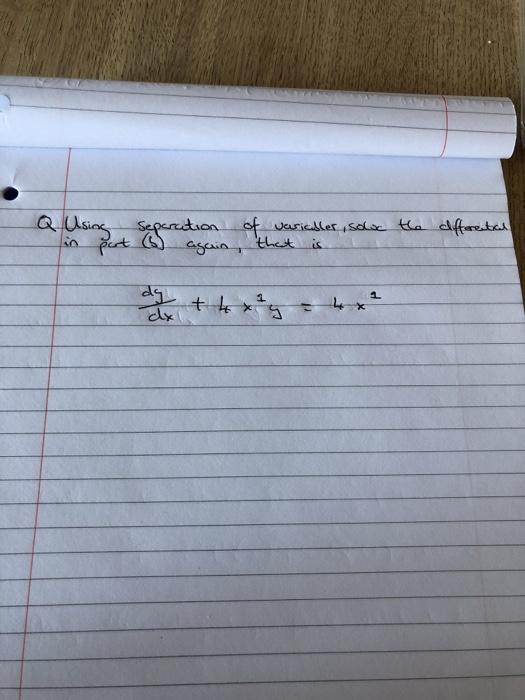 Q Using separation of variables, solve the differential
in part (b) again, that is
dy/dx + 4x¹y = 4x¹